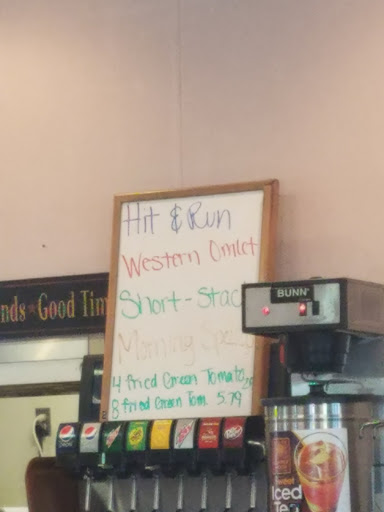 Hit & Run
Western Omlet
Short-Stac
Morning Spe
4 fried Green Tomato
8 fried Green Tom. 5.79
nds Good Tim
BUNN
pepsi
Dr Pepper
Iced
Tea